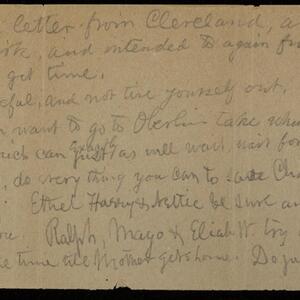 letter from Cleveland, a
and intended to again fr
get time.
ful, and not tire yourself out.
want to go to Oberlin take
Exactly
ich can just as well wait, wait for
do every thing you can to save Cha
Ethel Harry & Nettie be sure an
Ralph, Mayo & Eliab W. try
e time till Mother gets home. Do